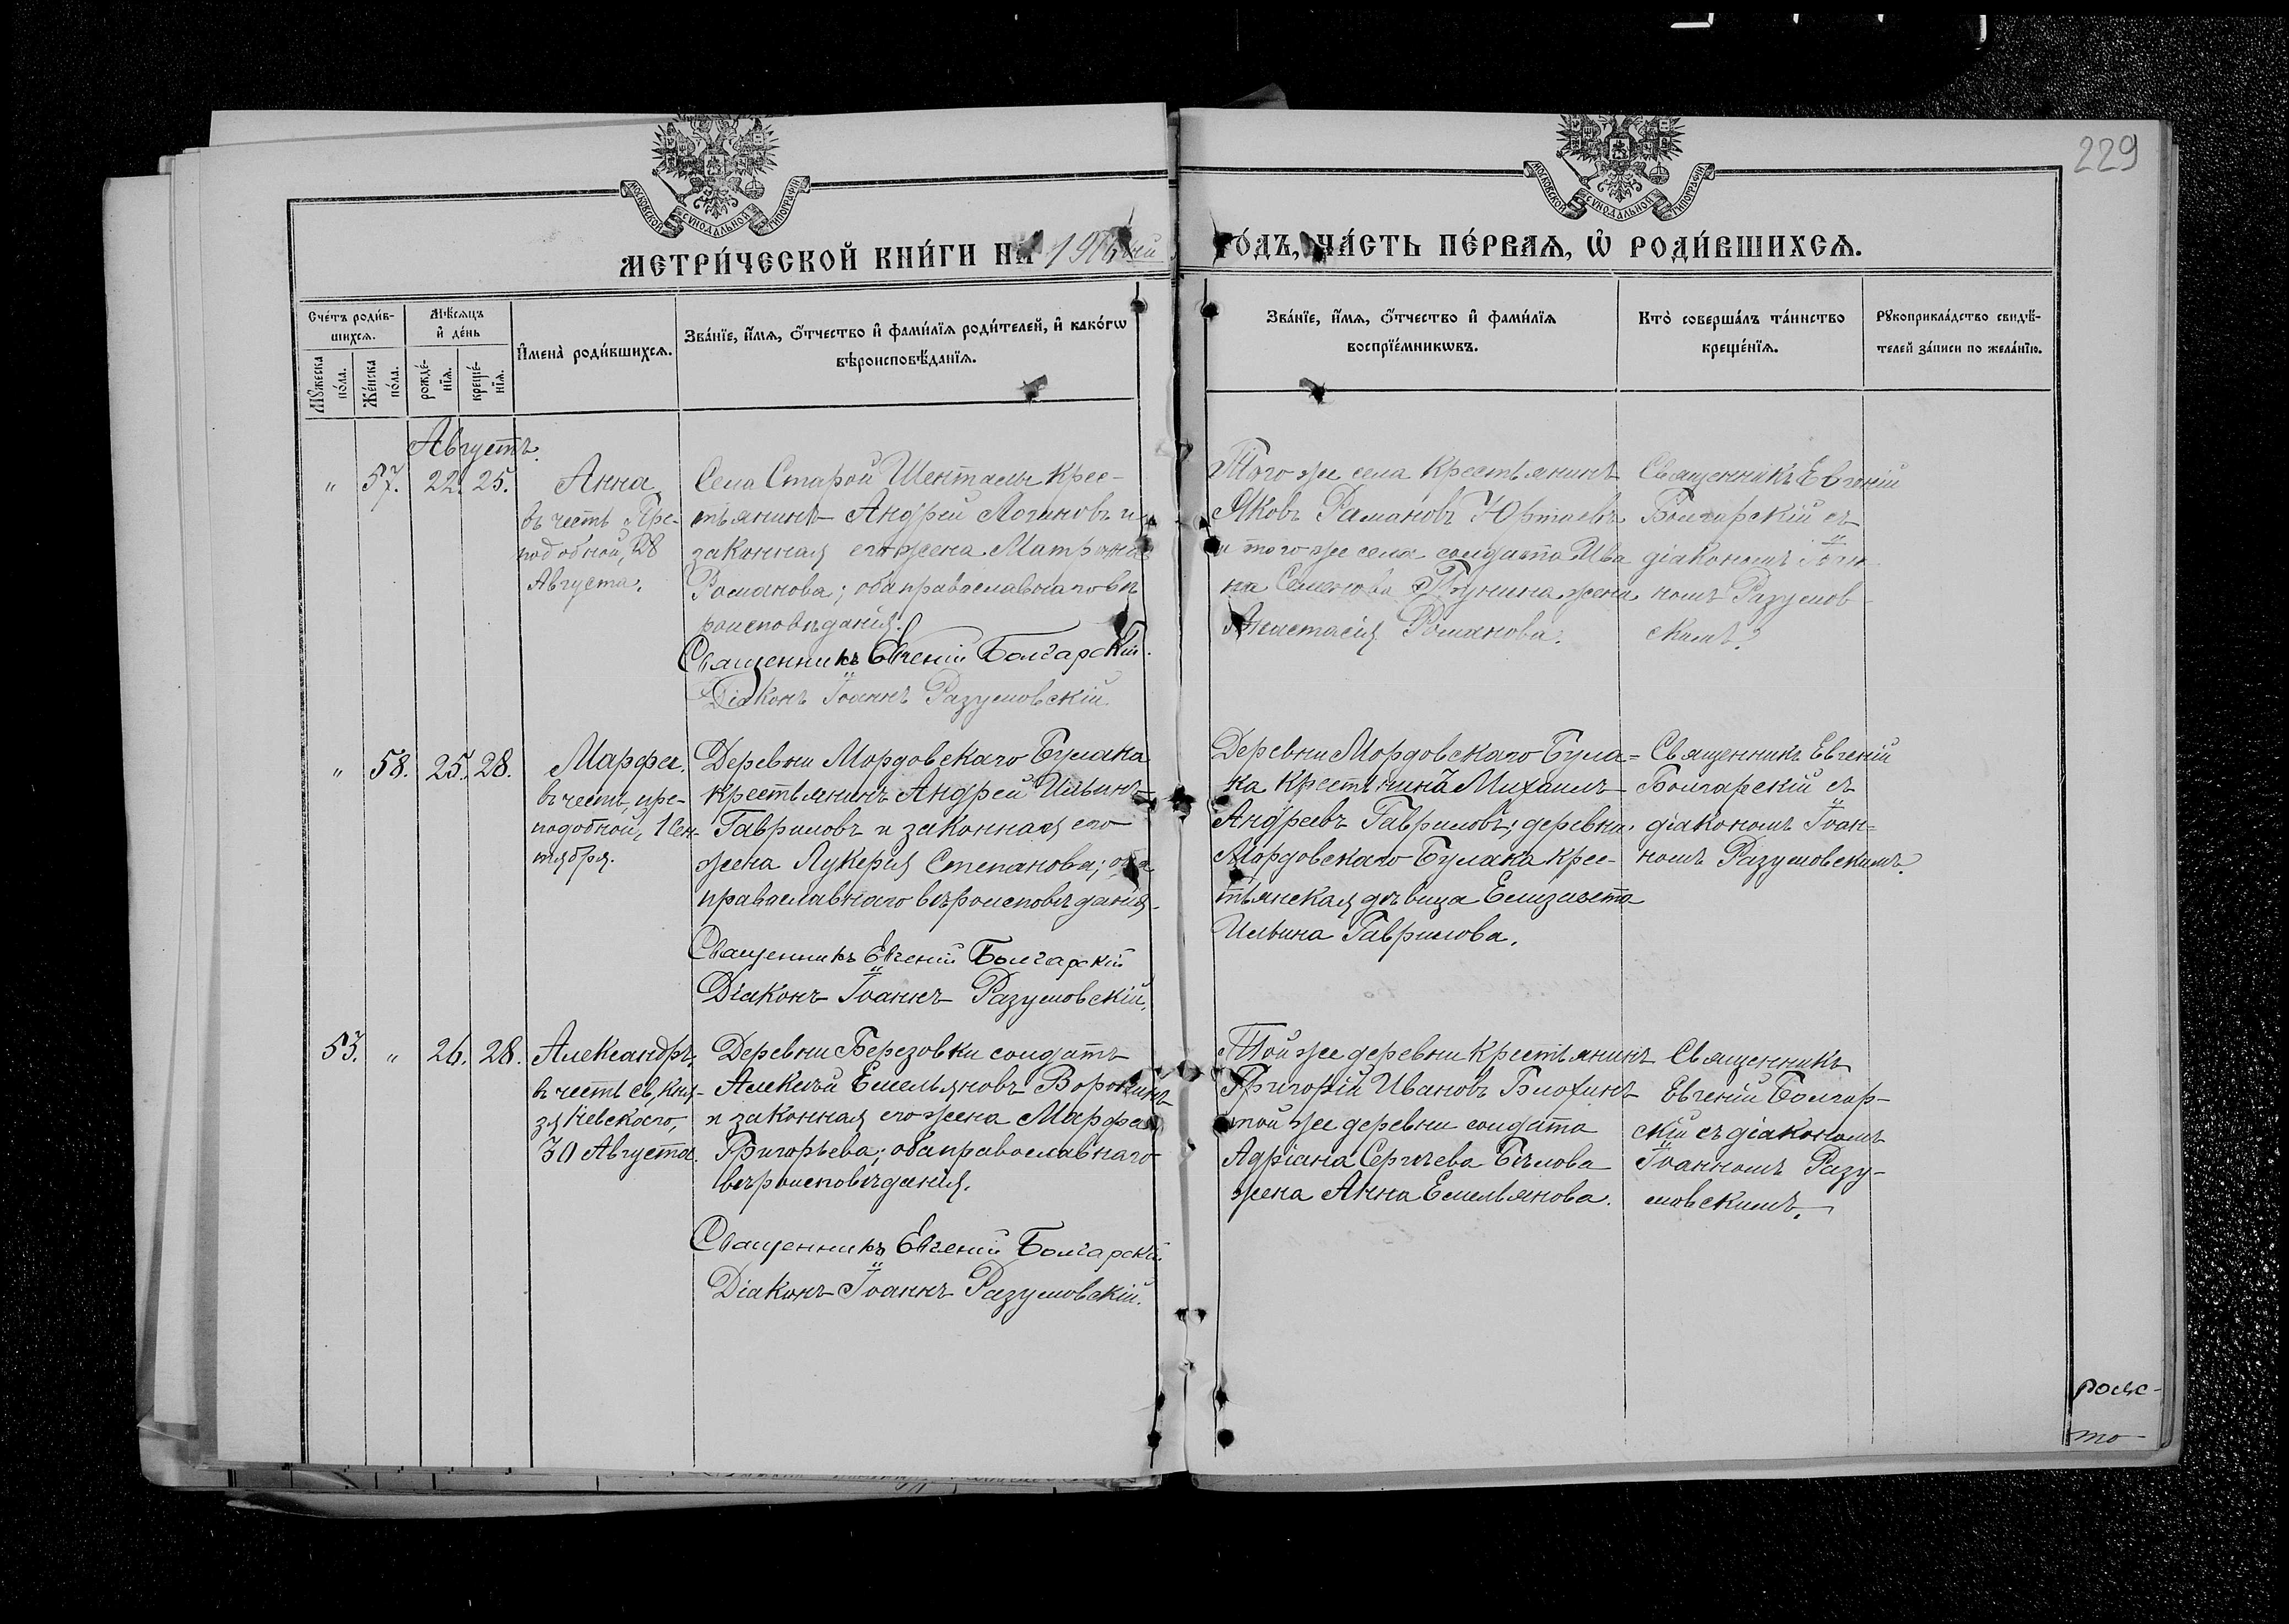 229
МОСКОВСКОЙ СѴНОДАЛЬНОЙ ТИПОГРАФІИ
МОСКОВСКОЙ СѴНОДАЛЬНОЙ ТИПОГРАФІИ
МЕТРИ́ЧЕСКОЙ КНИ́ГИ НА
ГО́ДЪ, ЧА́СТЬ ПЕ́РВАѦ, Ѡ҆ РОДИ́ВШИХСѦ.
Сче́тъ роди́в-
шихсѧ.
Мꙋжеска по́ла.
Же́нска по́ла.
Мѣ́сѧцъ
и҆ де́нь
рожде́-
нїѧ.
креще́-
нїѧ.
И҆мена̀ роди́вшихсѧ.
Зва́нїе, и҆́мѧ, ѻ҆́тчество и҆ фами́лїѧ роди́телей, и҆ како́гѡ
вѣроисповѣ́данїѧ.
Зва́нїе, и҆́мѧ, ѻ҆́тчество и҆ фами́лїѧ
воспрїе́мникѡвъ.
Кто̀ соверша́лъ та́инство
креще́нїѧ.
Рꙋкоприкла́дство свидѣ́-
телей за́писи по жела́нїю.
Августъ.
" 57. 22. 25.
Анна
въ честь Пре-
подобной, 28
Августа.
Села Старой Шенталы крес-
тьянинъ Андрей Логиновъ и
законная его жена Матрона
Романова; оба православнаго вѣ
роисповѣданія.
Священникъ Евгеній Болгарскій.
Діаконъ Іоаннъ Разумовскій.
Того же села крестьянинъ
Яковъ Романовъ Юртаевъ
и того же села солдата Ива
на Семенова жена
Анастасія Романова.
Священникъ Евгеній
Болгарскій съ
діакономъ Іоан-
номъ Разумов-
скимъ.
" 58. 25. 28.
Марфа.
въ честь, пре-
подобной, 1 Сен-
тября.
Деревни Мордовскаго Булака
крестьянинъ Андрей Ильинъ
Гавриловъ и законная его
жена Лукерія Степанова; оба
православнаго вѣроисповѣданія.
Священникъ Евгеній Болгарскій
Діаконъ Іоаннъ Разумовскій.
Деревни Мордовскаго Була=
ка крестьянинъ Михаилъ
Андреевъ Гавриловъ; деревни
Мордовскаго Булака крес-
тьянская дѣвица Елизавета
Ильина Гаврилова.
Священникъ Евгеній
Болгарскій съ
діакономъ Іоан=
номъ Разумовскимъ.
53. " 26. 28.
Александръ,
въ честь св. Кня-
зя Невскаго,
30 Августа.
Деревни Березовки солдатъ
Алексѣй Емельяновъ Воронинъ
и законная его жена Марфа
Григорьева; оба православнаго
вѣроисповѣданія.
Священникъ Евгеній Болгарскій.
Діаконъ Іоаннъ Разумовскій.
Той же деревни крестьянинъ
Григорій Ивановъ Блохинъ
той же деревни солдата
Адріана Сергѣева Бѣлова
жена Анна Емельянова.
Священникъ
Евгеній Болгар-
скій съ діакономъ
Іоанномъ Разу-
мовскимъ.
то-